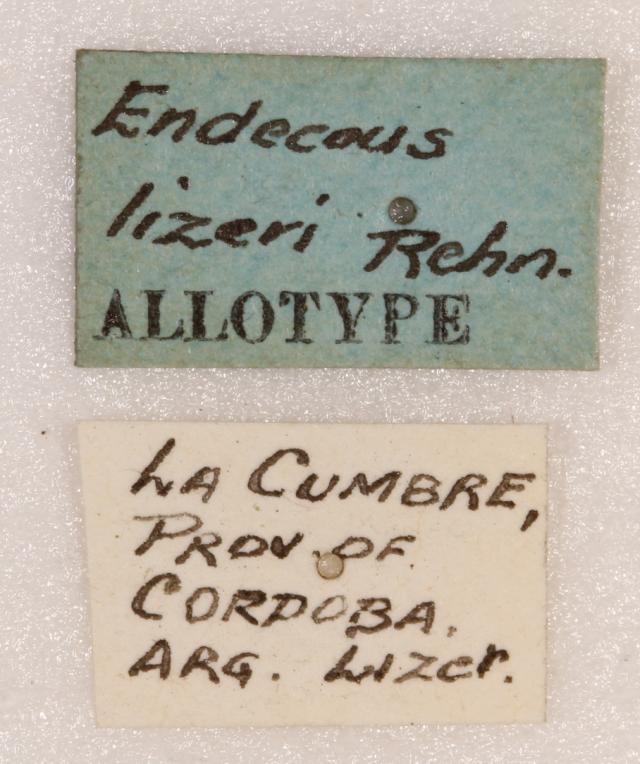 Endecous
lizeri Rehn.
ALLOTYPE
LA CUMBRE,
PROV. OF
CORDOBA.
ARG. Lizer.